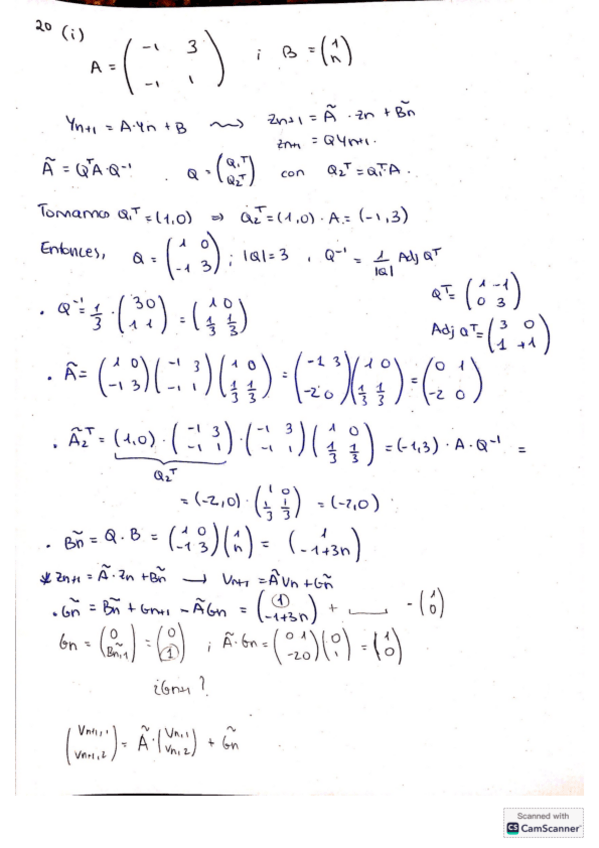 20 (i) A = ( -1 3 ; -1 1 ) ; B = ( 1 ; n )
Yn+1 = A·Yn + B ⇝ Zn+1 = Ã·Zn + B̃n
Zn+1 = QYn+1.
Ã = QᵀA·Q⁻¹ . Q = ( Q₁ᵀ ; Q₂ᵀ ) con Q₂ᵀ = Q₁ᵀA.
Tomamos Q₁ᵀ = (1,0) ⇒ Q₂ᵀ = (1,0)·A = (-1,3)
Entonces, Q = ( 1 0 ; -1 3 ) ; |Q| = 3 , Q⁻¹ = 1/|Q| Adj Qᵀ
Qᵀ = ( 1 -1 ; 0 3 )
· Q⁻¹ = 1/3 · ( 3 0 ; 1 1 ) = ( 1 0 ; 1/3 1/3 )
Adj Qᵀ = ( 3 0 ; 1 +1 )
· Ã = ( 1 0 ; -1 3 ) ( -1 3 ; -1 1 ) ( 1 0 ; 1/3 1/3 ) = ( -1 3 ; -2 0 ) ( 1 0 ; 1/3 1/3 ) = ( 0 1 ; -2 0 )
· Ã₂ᵀ = (1,0) · ( -1 3 ; -1 1 ) · ( -1 3 ; -1 1 ) ( 1 0 ; 1/3 1/3 ) = (-1,3) · A · Q⁻¹ =
Q₂ᵀ
= (-2,0) · ( 1 0 ; 1/3 1/3 ) = (-2,0)
· B̃n = Q · B = ( 1 0 ; -1 3 ) ( 1 ; n ) = ( 1 ; -1+3n )
* Zn+1 = Ã·Zn + B̃n → Vn+1 = ÃVn + G̃n
· G̃n = B̃n + Gn+1 - ÃGn = ( 1 ; -1+3n ) + ___ - ( 1 ; 0 )
Gn = ( 0 ; B̃n,1 ) = ( 0 ; 1 ) ; Ã·Gn = ( 0 1 ; -2 0 ) ( 0 ; 1 ) = ( 1 ; 0 )
¿Gn+1?
( Vn+1,1 ; Vn+1,2 ) = Ã · ( Vn,1 ; Vn,2 ) + G̃n
Scanned with
CS CamScanner